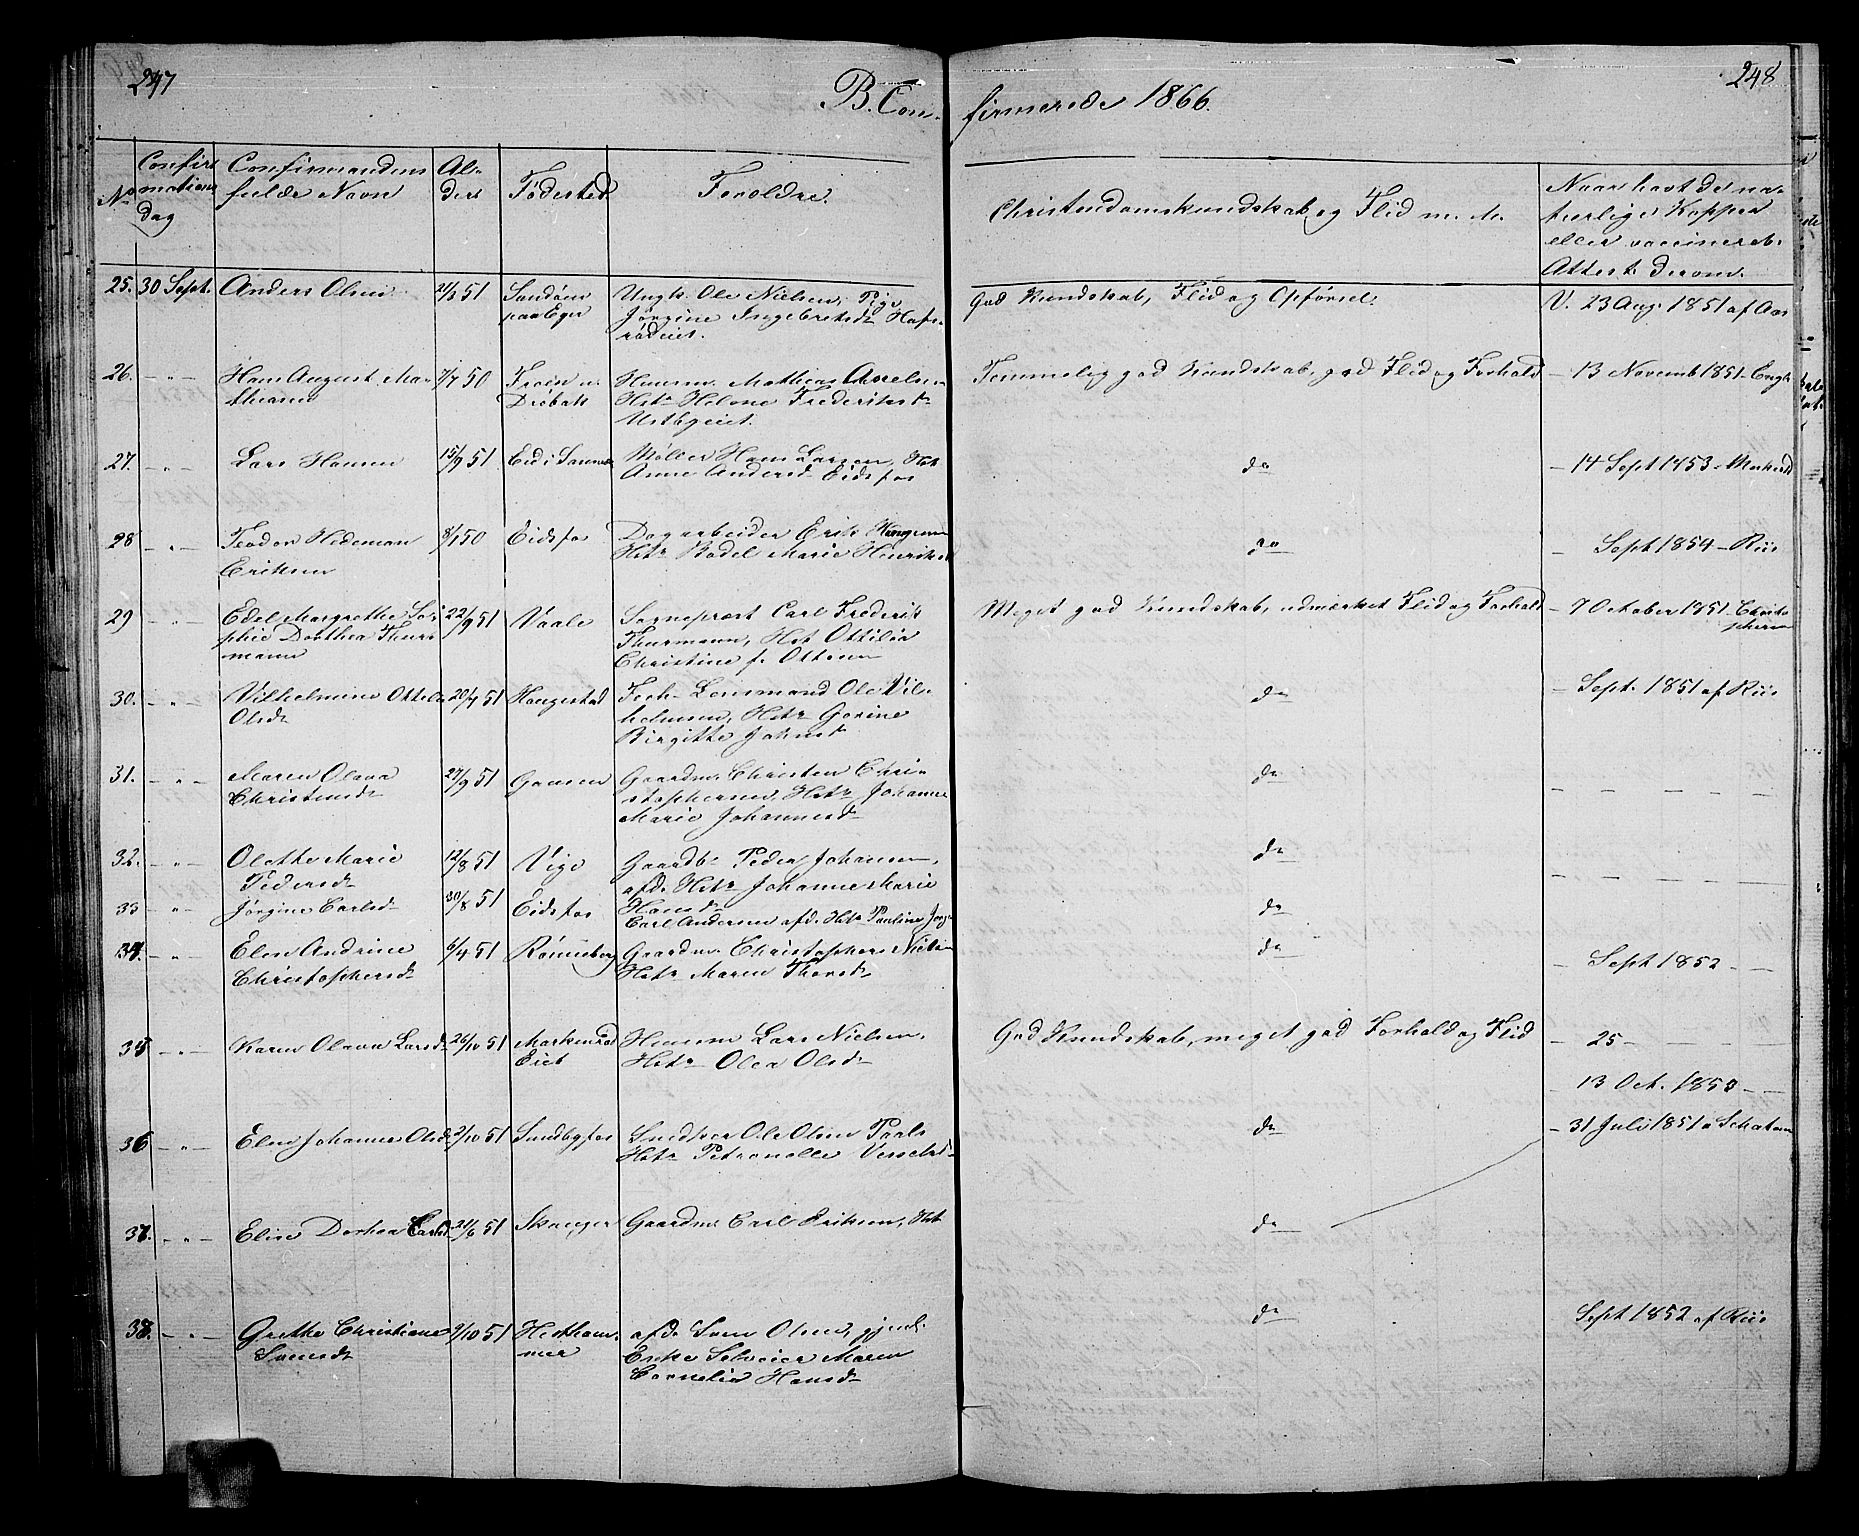 247
B. Con-
firmerede 1866.
248
No
Confir
mations
dag
Confirmandens
fulde Navn
Al-
der
Fødested
Forældre.
Christendomskundskab og Flid m. v.
Naar havt de na-
turlige Kopper
eller vaccineret.
Attest derom.
25. 30 Sept. Anders Olsen 21/3 51 Sandøen
paa Eger
Ungk. Ole Nielsen, Pige
Jørgine Ingebretsd.
God Kundskab, Flid og Opførsel.
V. 23 Aug. 1851 af Aas
26. — " — Hans August Ma-
thisen
7/7 50 Froen v.
Drøbak
Huusm. Mathias Axelsen
Hstr Helene Frederiksd.
Temmelig god Kundskab, god Flid og Forhold
— 13 Novemb 1851 — Engh
27. — " — Lars Hansen 15/9 51 Eid i
Møller Hans Larsen, Hst
Anne Andersd. Eidsfos
do
— 14 Sept 1853 —
28 — " — Teodor Hedeman
Eriksen
8/1 50 Eidsfos
Dagarbeider Erik
Hstr Bodel Marie Henriksd
do
— Sept 1854 — Riis
29 — " — Edel Margrethe So-
phie Dorthea Thur-
mann
22/9 51 Vaale
Sogneprest Carl Frederik
Thurmann, Hst Ottilia
Christine f. Ottesen
Meget god Kundskab, udmærket Flid og Forhold
— 7 October 1851 — Christo
phersen
30. — " — Vilhelmine Ottilia
Olsdr
20/7 51 Haugestad
Lensmand Ole Vil-
helmsen, Hstr Gorine
Birgitte Johnsd.
do
— Sept. 1851 af Riis
31. — " — Maren Olava
Christensdr
27/9 51
Gaardm. Christen Chri-
stophersen, Hstr Johanne
Marie Johannesdr
do
— — — — —
32. — " — Olette Marie
Pedersdr
12/8 51 Vige
Gaardbr Peder Johansen,
afd. Hstr Johanne Marie
Hansdr
do
— — — — —
33 — " — Jørgine Carlsdr 30/8 51 Eidsfos
Carl Andersen afd. Hstr Pauline
do
34. — " — Elen Andrine
Christophersdr
6/4 51 Rønneberg
Gaardm. Christopher Nielsen
Hstr Maren Thorsdr
do
— Sept 1852 — —
35 — " — Karen Olava Larsdr 26/10 51 Markenrød
Eiet
Huusm Lars Nielsen,
Hstr Olea Olsdr
God Kundskab, meget god Forhold og Flid
— 25 —
— 13 Oct. 1853 — —
36 — " — Elen Johanne Olsdr 2/10 51 Sundbyfos
Ole Olsen
Hstr Petronelle
do
— 31 Juli 1851
37. — " — Elise Dorthea Carlsd. 21/6 51 Skanger
Gaardm. Carl Eriksen, Hst
do
38. — " — Grethe Christiane
Svensdr
9/10 51 Hestham-
mer
afd. Sven Olsen, gjenl.
Enke Selveier Maren
Cornelia Hansdr
do
Sept 1852 af Riis